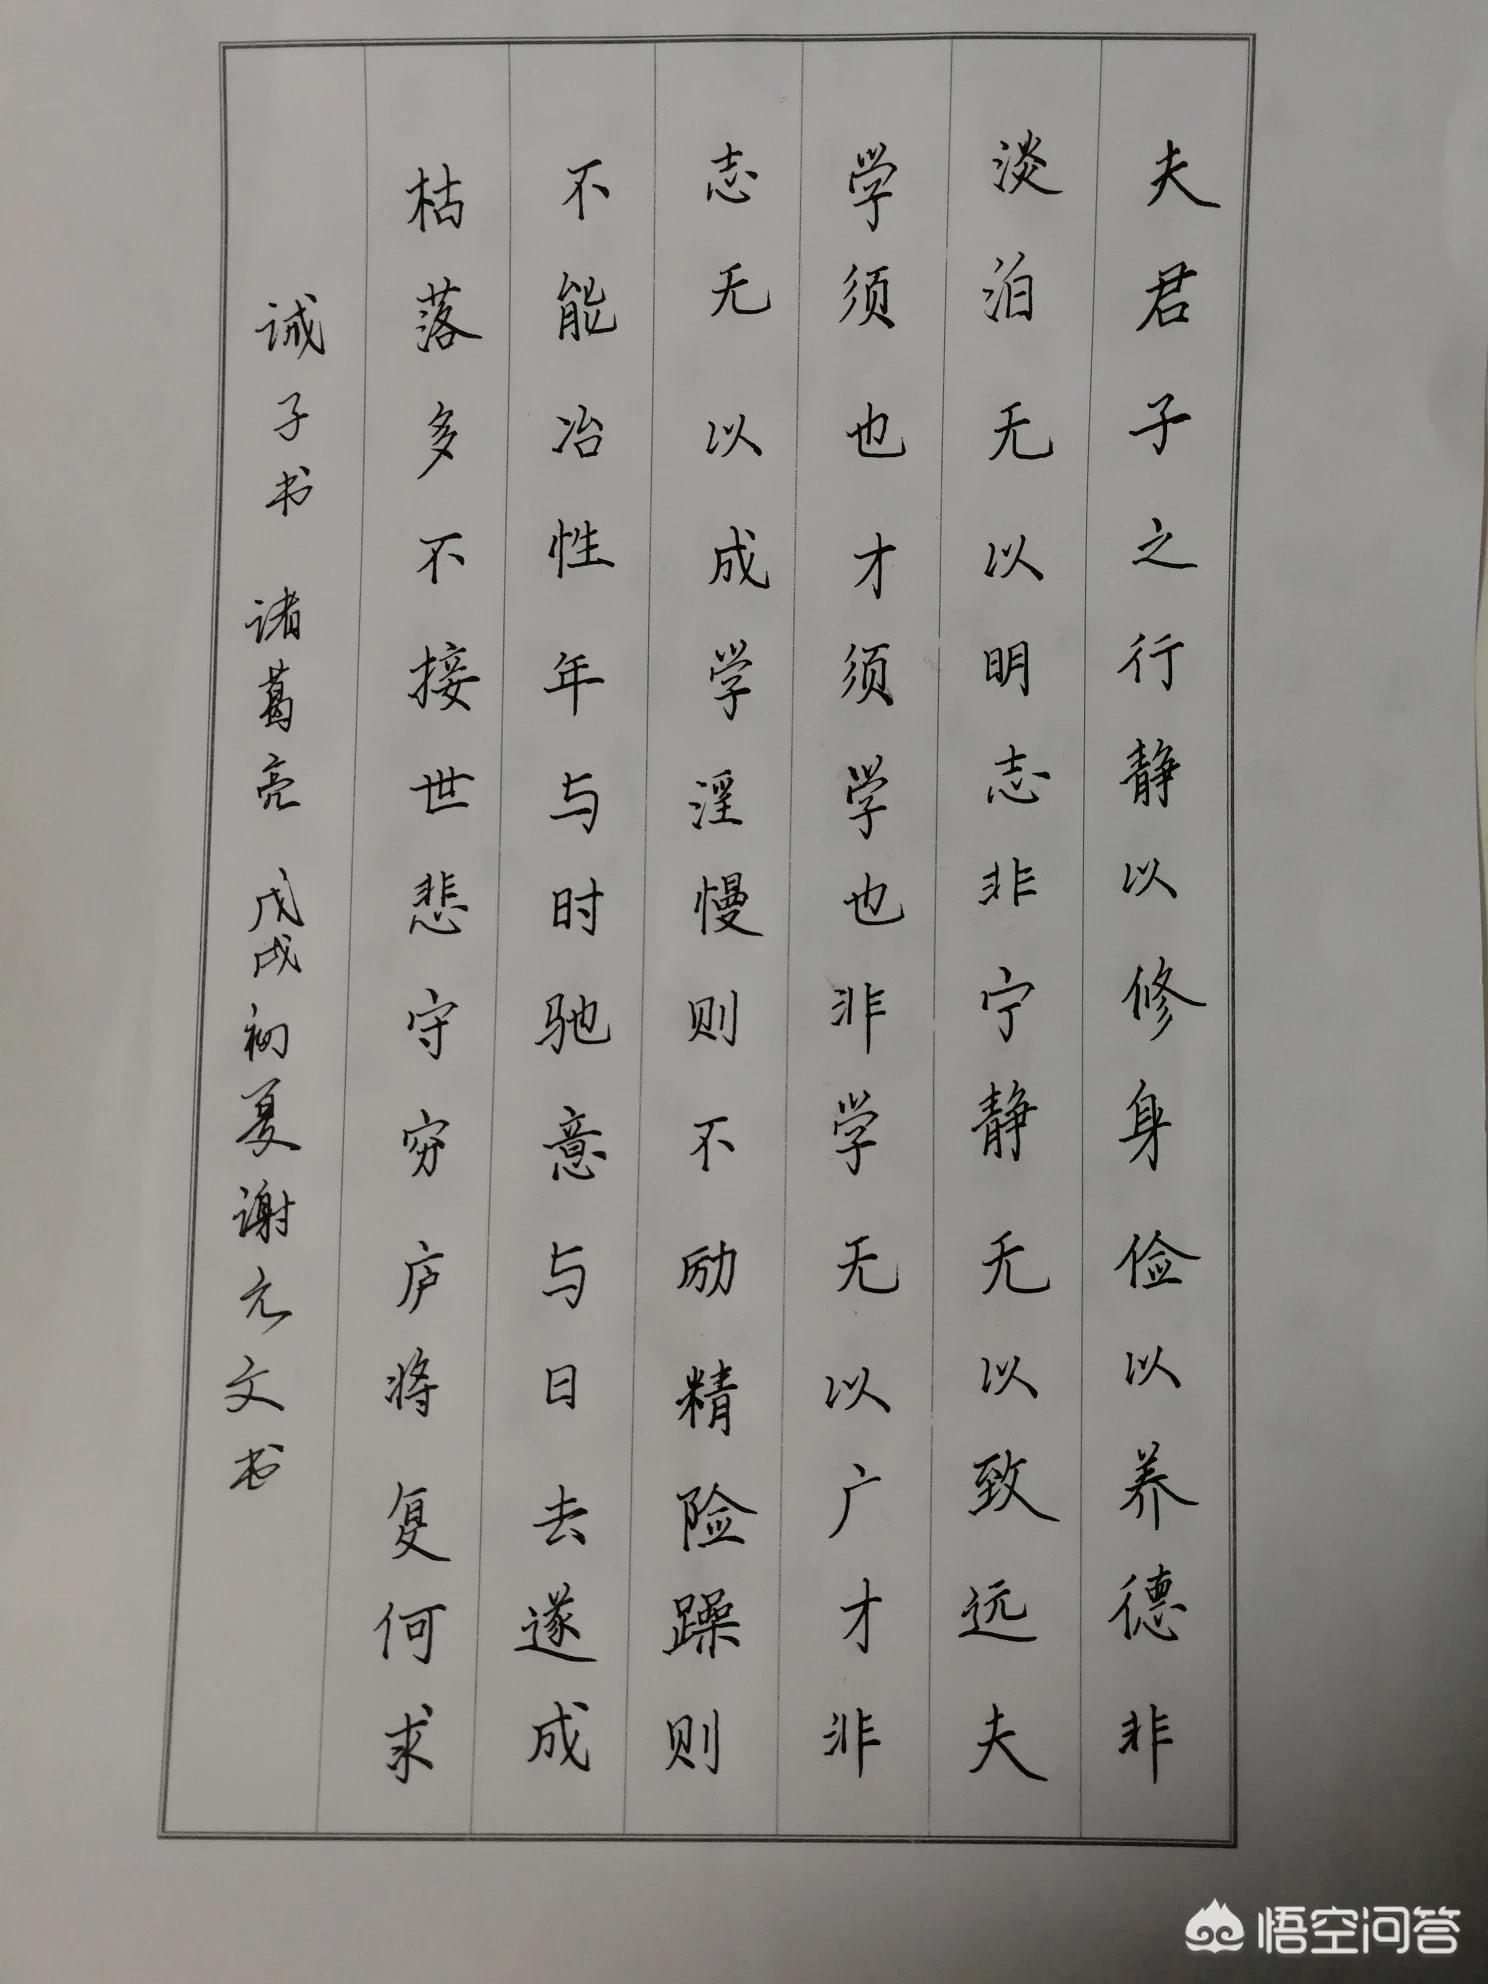 夫君子之行静以修身俭以养德非
淡泊无以明志非宁静无以致远夫
学须也才须学也非学无以广才非
志无以成学淫慢则不励精险躁则
不能冶性年与时驰意与日去遂成
枯落多不接世悲守穷庐将复何求
诫子书 诸葛亮 戊戌初夏谢元文书
悟空问答